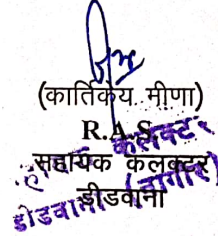 (कार्तिकेय मीणा)
R.A.S.
सहायक कलक्टर
डीडवाना
कलक्टर
डीडवाना (नागौर)